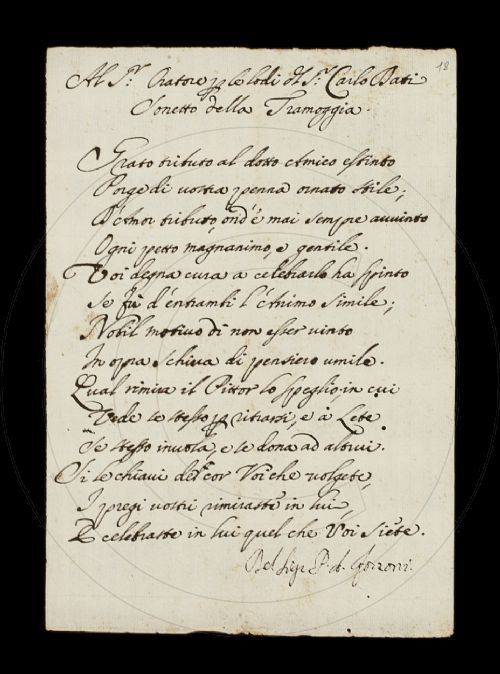 18
Al Sr. Oratore p le lodi del Sr. Carlo Dati
Sonetto della Tramoggia.
Grato tributo al dotto Amico estinto
Porge di vostra penna ornato stile;
D'Amor tributo, ond'è mai sempre avvinto
Ogni petto magnanimo, e gentile.
Voi degna cura a celebrarlo ha spinto
Se fù d'entrambi l'Animo simile;
Nobil motivo di non esser vinto
In opra schiva di pensiero umile.
Qual rimira il Pittor lo speglio, in cui
Vede se stesso p ritrarsi, e à Lete
Se stesso invola, e se dona ad altrui.
Sì le chiavi del cor Voi che volgete,
I pregi vostri rimiraste in lui,
E celebraste in lui quel che Voi siete.
Del Sigr